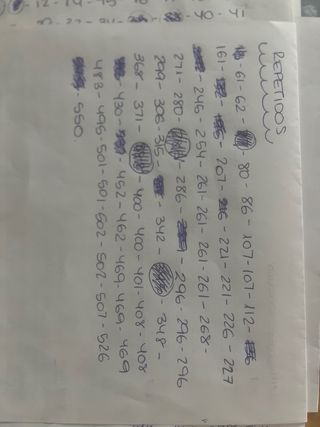 - 40 - 41
REPETIDOS
61 - 62 - 80 - 86 - 107 - 107 - 112 -
161 - 207 - 221 - 221 - 226 - 227
246 - 254 - 261 - 261 - 261 - 261 - 268 -
271 - 280 - 286 - 296 - 296 - 296
299 - 306 - 315 - 342 - 348 -
368 - 371 - 400 - 400 - 401 - 408 - 408
430 - 452 - 462 - 469 - 469 - 469
483 - 495 - 501 - 501 - 502 - 502 - 507 - 526
550.